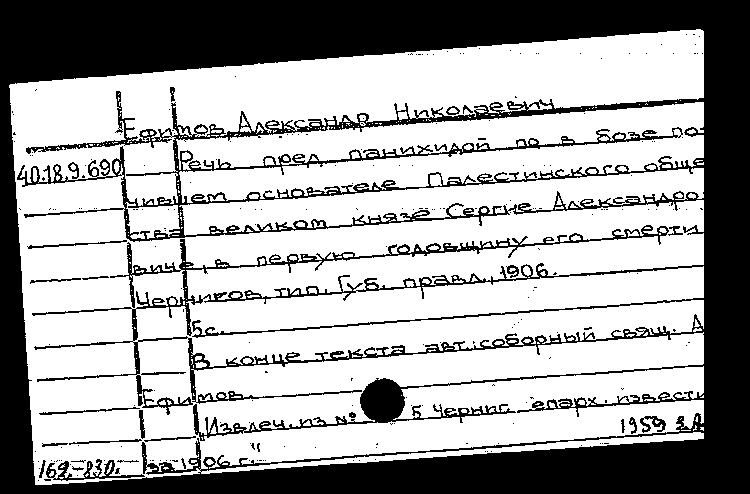 Ефимов, Александр Николаевич
40.18.9.690 Речь пред панихидой по в бозе по-
чившем основателе Палестинского обще
ства великом князе Сергие Александро
виче, в первую годовщину его смерти
Чернигов, тип. Губ. правл., 1906.
5с.
В конце текста авт.: соборный свящ. А
Ефимов.
"Извлеч. из № 5 Черниг. епарх. извести
за 1906 г."
1959
169.-830.